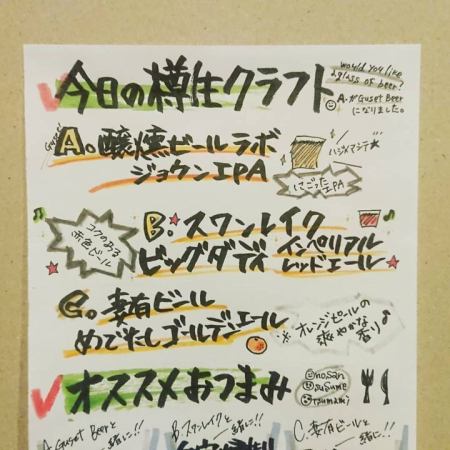 今日の樽生クラフト
would you like
a glass of beer?
A.がGuset Beer
になりました。
Guset
A.醸燻ビールラボ
ジョウクンIPA
ハジメマシテ
にごったIPA
コクのある
赤色ビール
B.スワンレイク
ビッグダディ インペリアル
レッドエール
C.妻有ビール
めでたしゴールデンエール
※オレンジピールの
爽やかな
香り♪
オススメおつまみ
osan
osusume
otsumami
A.Guset Beerと
一緒に!!
B.スワンレイクと
一緒に!!
C.妻有ビールと
一緒に!!